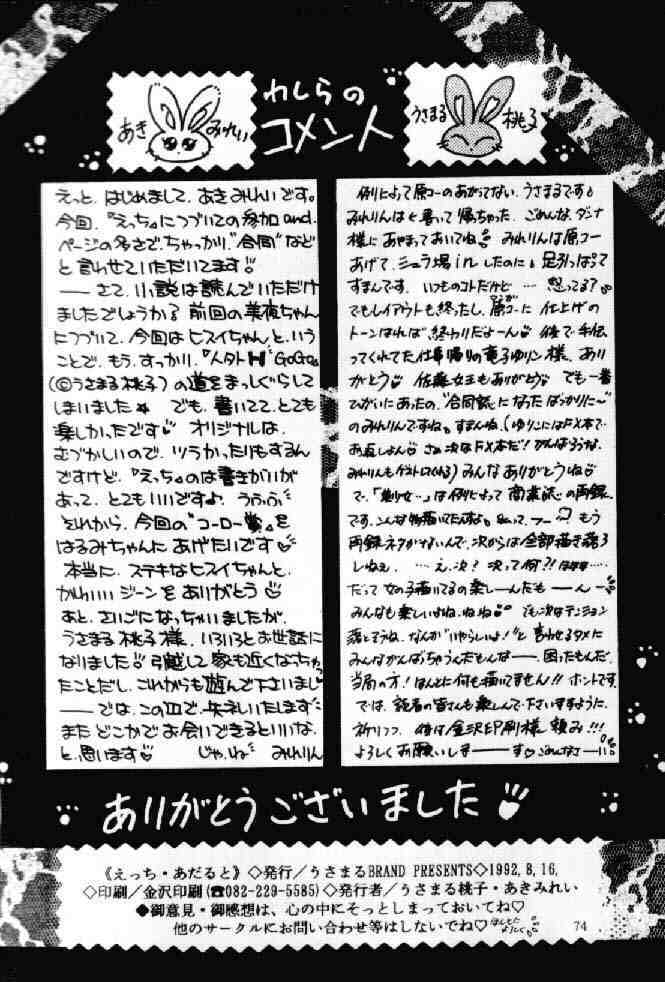 わしらの
コメント
あき みれい
うさまる 桃子
えっと、はじめまして、あきみれいです。
今回、『えっち』につづいての参加and.
ページの多さで、ちゃっかり、"合同"など
と言わせていただいてます
――さて、小説は読んでいただけ
ましたでしょうか？前回の美夜ちゃん
につづいて、今回はヒスイちゃん、という
ことで、もう、すっかり、『人タトH GoGo』
(©うさまる桃子)の道をまっしぐらして
しまいました★ でも、書いてて、とても
楽しかったです♡ オリジナルは、
むづかしいので、ツラかったりもするん
ですけど、『えっち』のは書きがいが
あって、とてもいいです♪ うふふ
それから、今回の"コーロー賞"を
はるみちゃんに あげたいです
本当に、ステキなヒスイちゃんと、
かわいいジーンをありがとう♡
あと、さいごになっちゃいましたが、
うさまる桃子様、いろいろとお世話に
なりました 引越して家も近くなっちゃっ
たことだし、これからも遊んで下さいまし
――では、この辺で、失礼いたします
またどこかでお会いできるといいな、
と、思います♡ じゃ、ね みれりん
例によって原コーのあがってない、うさまるです
みれりんは 書って帰ちゃった、ごめんな、ダンナ
様にあやまっておいてね みれりんは原コー
あげて、シュラ場inしたのに 足引っぱって
すまんです、いつものコトだけど… 怒ってる？
でもレイアウトも終ったし、原コーに仕上げの
トーンはれば、終わりだよーん 後で手伝
ってくれてた仕事帰りの竜子ゆりン様、あり
がとう 佐藤女王もありがとう でも一番
のみれりんですね、すまんね、(ゆりこにはFX本で
みれりんもゲストしてくれる) みんなありがとうね
で、は例によって商業誌の再録
です、 もう
再録ネタがないんで、次からは全部描き下ろ
しねぇ、 …え、次？ 次って何？！
だって女の子描いてるの楽しーんだも――ん
みんなも楽しいよね、ねね でも次はテンション
落とそうね、なんか"いやらしいよ！"と言わせるタメに
みんながんばっちゃうんだもんな―― 困ったもんだ、
当局の方！ほんとに何も描いてません！！ホントです
では、読者の皆さんも楽しんで下さいますように、
祈りつつ、 後は金沢印刷様 頼み！！！
よろしくお願いしま――――す♡
ありがとうございました♡
《えっち・あだると》◇発行／うさまるBRAND PRESENTS◇1992,8,16,
◇印刷／金沢印刷(☎082-229-5585)◇発行者／うさまる桃子・あきみれい
●御意見・御感想は、心の中にそっとしまっておいてね♡
他のサークルにお問い合わせ等はしないでね♡
74